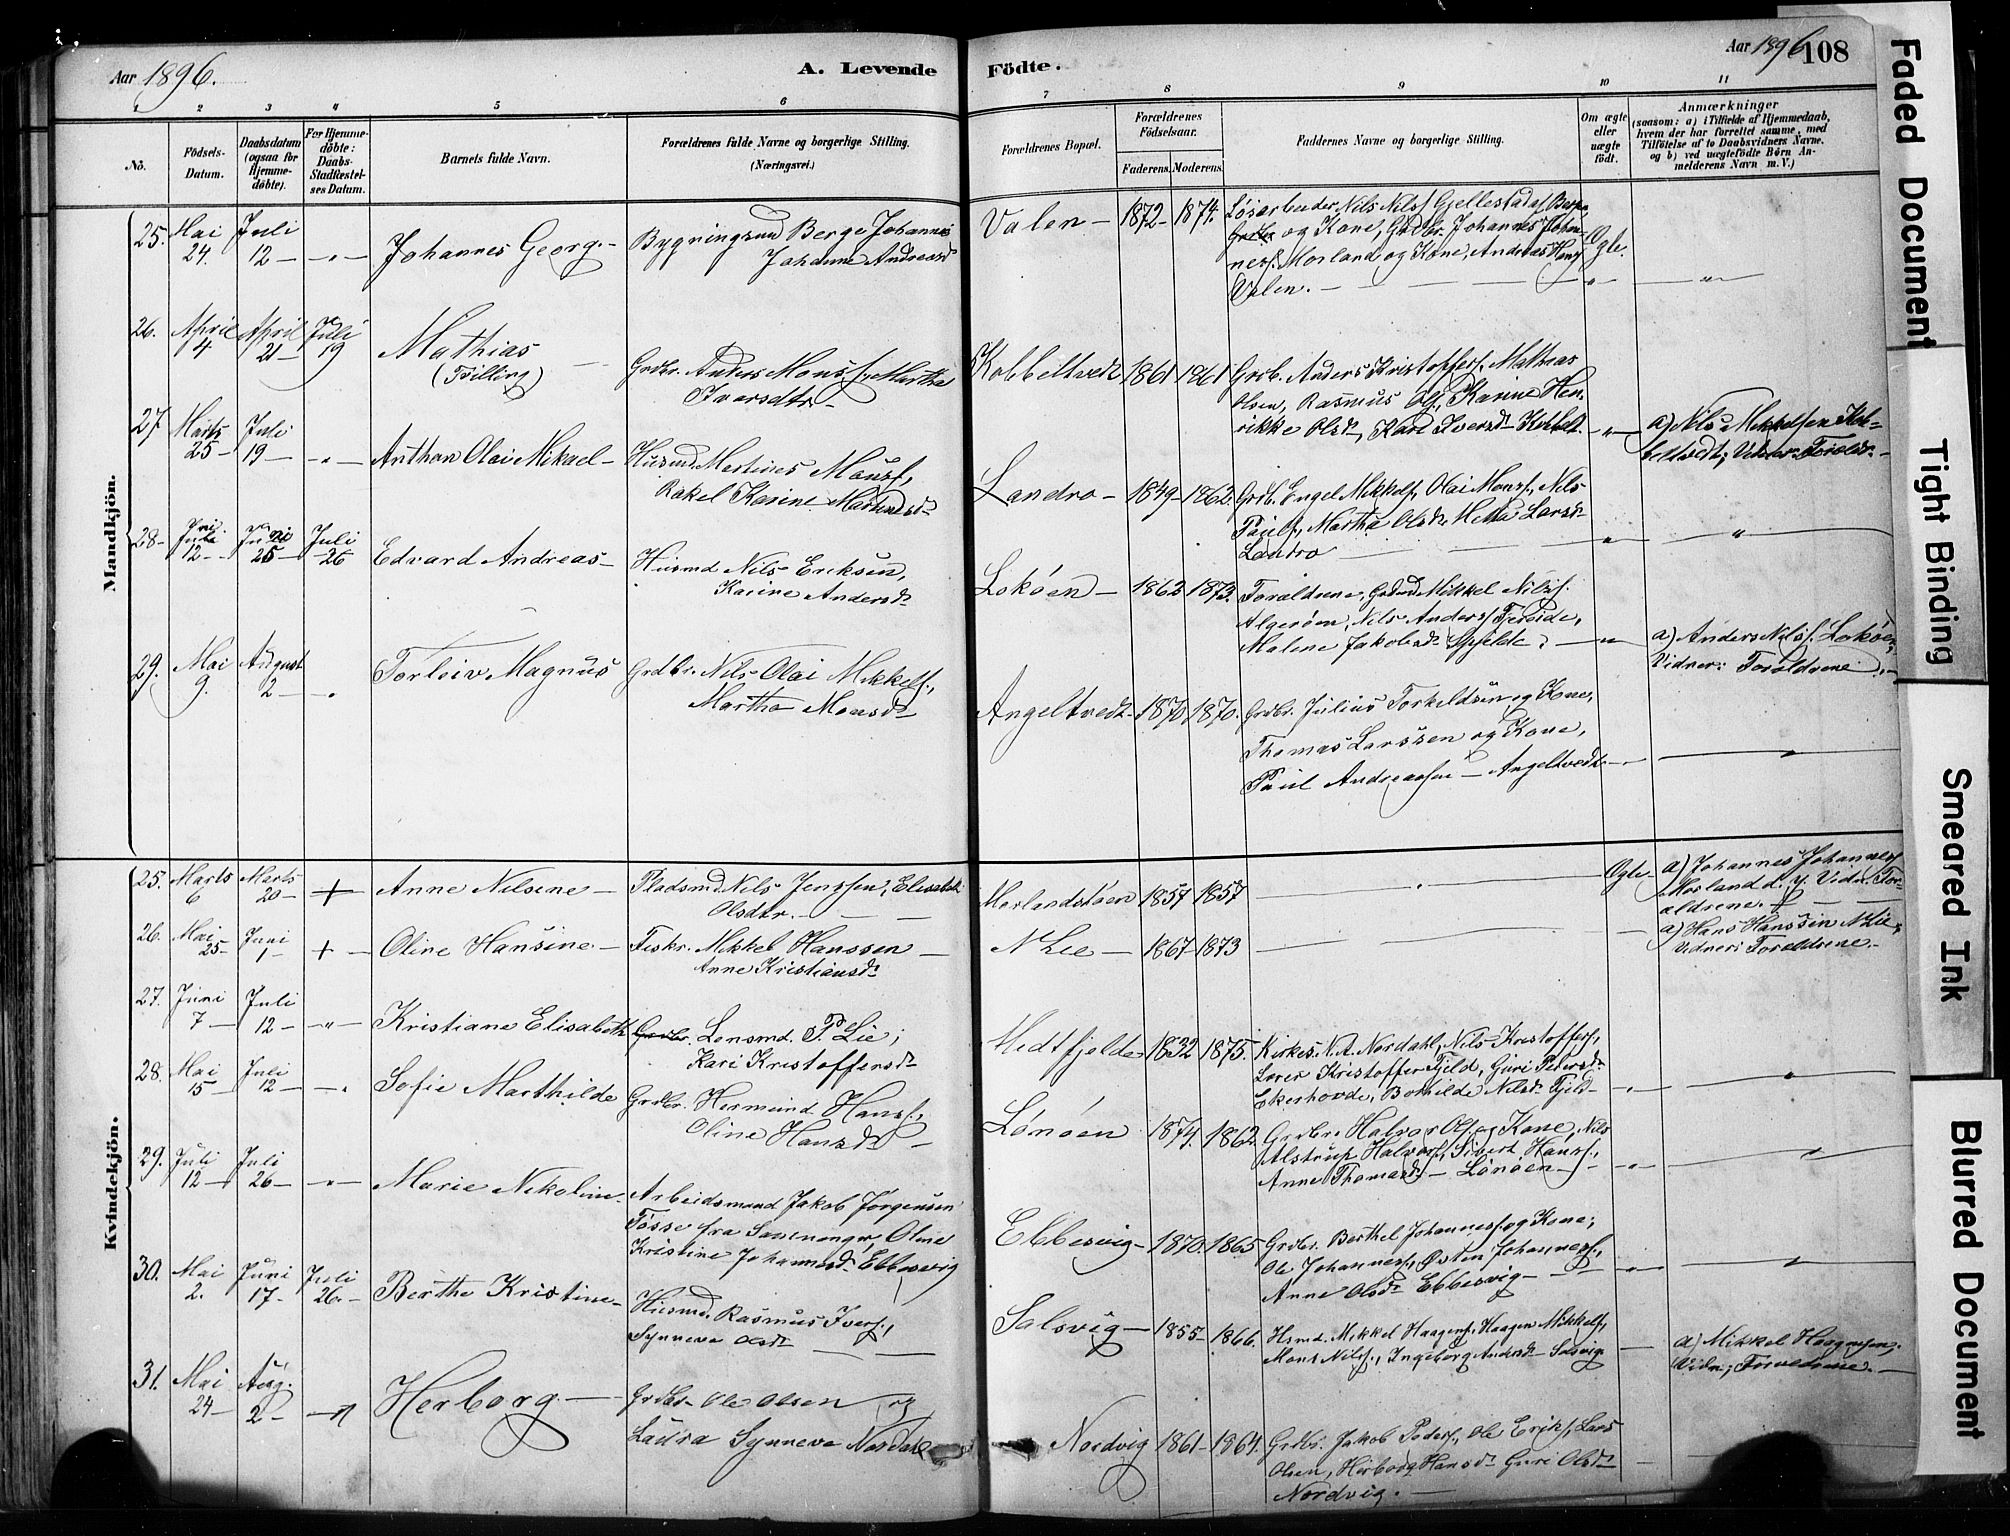 Aar 1896.
A. Levende
Födte.
Aar 1896
108
1 2 3 4 5 6 7 8 9 10 11
No.
Födsels-
Datum.
Daabsdatum
(ogsaa for
Hjemme-
döbte).
For Hjemme-
döbte:
Daabs-
Stadfæstel-
ses Datum.
Barnets fulde Navn.
Forældrenes fulde Navne og borgerlige Stilling.
(Næringsvei.)
Forældrenes Bopæl.
Forældrenes
Födselsaar.
Faderens. Moderens.
Faddernes Navne og borgerlige Stilling.
Om ægte
eller
uægte
födt.
Anmærkninger
(saasom: a) i Tilfælde af Hjemmedaab,
hvem der har forrettet samme, med
Tilföielse af to Daabsvidners Navne.
og b) ved uægtefödte Börn An-
melderens Navn m. V.)
Mandkjön.
25. Mai 24. Juli 12 — „ — Johannes Georg. —
Bygningsmd Berge Johannes
Johanne Andreasd
Valen — 1872 — 1874.
Løsarbeider Nils Nilss Gjellestad
og Kone, Grdbr. Johannes Johan-
ness. Morland og Kone, Andreas Hans
Valen. —
Ægte.
26. April 4 April 21 — Juli 19
Mathias
(Tvilling)
Grdbr. Anders Monss., Martha
Iversdtr. —
Kobbeltvedt 1861 1861
Grdb. Anders Kristoffers. Mathias
Olsen, Rasmus Ols, Karine Hen-
rikke Olsd, Kari Iversd. Kobbelt.
a) Nils Mikkelsen Kob-
beltvedt; Vidner: Foreldr. —
27 Marts 25 — Juli 19 — „ — Anthon Olai Mikael —
Husmd. Martines Monss.,
Rakel Karine Martinusd
Landro — 1849 — 1862.
Grdb. Engel Mikkels, Olai Monss., Nils
Pauls, Martha Olsd. Metta Larsd
Landro
28 — Juni 12 — Juni 25 Juli 26
Edvard Andreas —
Husmd Nils Eriksen,
Karine Andersd
Lokøen — 1862 1873.
Forældrene, Grdmd Mikkel Nilss.
Algerøen, Nils Anderss. Tjeide,
Malene Jakobsd. Spjelde. —
a) Anders Nilss. Lokøen;
Vidner: Forældrene. —
29. Mai 9. August 2 —
Torleiv Magnus
Grdbr. Nils Olai Mikkels.,
Martha Monsd
Angeltvedt 1870 1870.
Grdbr. Julius Torkeldsen og Kone,
Thomas Larssen og Kone,
Paul Andreassen — Angeltvedt —
Kvindekjön.
25. Marts 6 Marts 20 — + — Anne Nilsine —
Pladsmd Nils Jenssen, Elisabeth
Olsdtr. —
Morlandstøen 1857 1857
Ægte.
a) Johannes Johannes
Morland d. y. Vidn. For-
ældrene. —
26. Mai 25 Juni 1 — + — Oline Hansine —
Fiskr. Mikkel Hanssen —
Anne Kristiansd
N Lie — 1867 — 1873
a) Hans Hanssen N Lie;
Vidner: Forældrene. —
27. Juni 7 — Juli 12 — „ — Kristiane Elisabeth
Grdbr. Lensmd. P. Lie;
Kari Kristoffersd
Midtfjelde 1832 1875.
Kirkes. N. A. Nordahl, Nils Kristoffers,
Lærer Kristoffer Fjeld, Guri Pedersd
Ekerhovde, Bothilde Nilsd. Fjeld —
28. Mai 15 Juli 12 —
Sofie Marthilde
Grdbr. Hermund Hanss.,
Oline Hansd —
Lønøen 1874. 1862
Grdbr. Halvor Ols. og Kone, Nils
Alstrup Halvors., Sivert Hanss.,
Anne Thomasd. — Lønøen —
29. Juli 12 — Juli 26 — „ — Marie Nikoline.
Arbeidsmand Jakob Jørgensen
Tøsse fra Samnanger, Oline
Kristine Johannesd. Ebbesvig
Ebbesvig — 1870. 1865
Grdbr. Berthel Johanness. og Kone;
Ole Johanness., Østen Johanness.,
Anne Olsd. Ebbesvig —
30. Mai 2. Juni 17 — Juli 26. —
Berthe Kristine —
Husmd. Rasmus Ivers.,
Synneve Olsd
Solsvig — 1855 — 1866.
Hsmd. Mikkel Haagens., Haagen Mikkels.,
Mons Nilss., Ingeborg Andersd Solsvig
a) Mikkel Haagensen,
Vidn; Forældrene. —
31. Mai 24 — Aug. 2 — „
Herborg —
Grdbr. Ole Olsen og
Laura Synneve Nordvig
Nordvig 1861 — 1861.
Grdbr. Jakob Peders., Ole Eriks., Lars
Olsen, Herborg Hansd. Guri Olsd
Nordvig. —
Faded Document
Tight Binding
Smeared Ink
Blurred Document